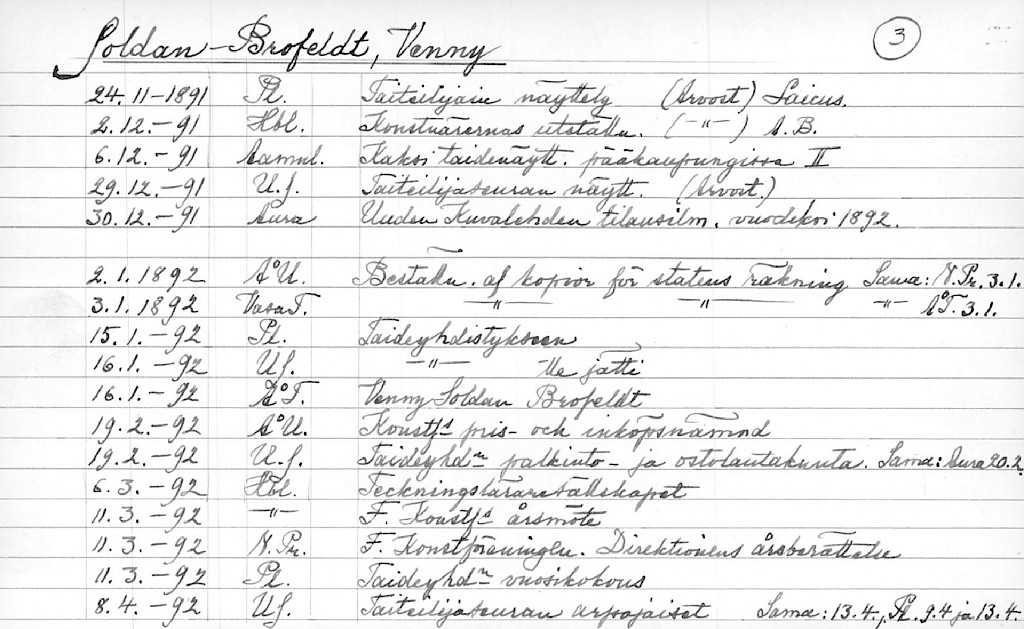 Soldan-Brofeldt, Venny 3
24.11-1891 Pl. Taiteilijain näyttely (Arvost) Laicus.
2.12.-91 Hbl. Konstnärernas utställn. (-"-) A.B.
6.12.-91 Aamul. Kaksi taidenäytt. pääkaupungissa II
29.12.-91 U.S. Taiteilijaseuran näytt. (Arvost.)
30.12.-91 Aura Uuden Kuvalehden tilausilm. vuodeksi 1892.
2.1.1892 ÅU. Beställn. af kopior för statens räkning Sama: N.Pr. 3.1.
3.1.1892 Vasa T. -"- -"- -"- ÅT. 3.1.
15.1.-92 Pl. Taideyhdistykseen
16.1.-92 U.S. -"- Me jätti
16.1.-92 ÅT. Venny Soldan Brofeldt
19.2.-92 ÅU. Konstfs pris- och inköpsnämnd
19.2.-92 U.S. Taideyhdn palkinto- ja ostolautakunta. Sama: Aura 20.2.
6.3.-92 Hbl. Teckningsläraresällskapet
11.3.-92 -"- F. Konstfs årsmöte
11.3.-92 N.Pr. F. Konstföreningen. Direktionens årsberättelse
11.3.-92 Pl. Taideyhdn vuosikokous
8.4.-92 U.S. Taiteilijaseuran arpajaiset Sama: 13.4., Pl. 9.4 ja 13.4.